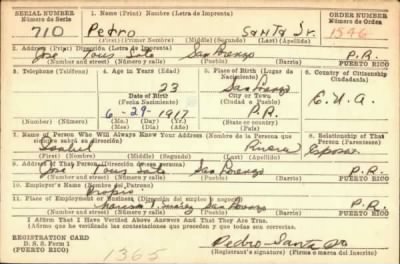 SERIAL NUMBER
Número de Serie
1. Name (Print) Nombre (Letra de Imprenta)
ORDER NUMBER
Número de Orden
710
Pedro Santa Jr.
1546
(First) (Primer Nombre) (Middle) (Segundo) (Last) (Apellido)
2. Address (Print) Dirección (Letra de Imprenta)
San Lorenzo P.R.
PUERTO RICO
3. Telephone (Teléfono)
4. Age in Years (Edad)
5. Place of Birth (Lugar de Nacimiento)
6. Country of Citizenship
Ciudadanía
23
San Lorenzo
Date of Birth
(Fecha Nacimiento)
City or Town
(Ciudad o Pueblo)
E.U.A.
6-29-1917
P.R.
Number (Número)
(Mo.) (Mes) (Day) (Día) (Yr.) (Año)
State or Country
(Estado o país)
7. Name of Person Who Will Always Know Your Address (Nombre de la Persona que siempre sabrá su dirección)
8. Relationship of That Person (Parentesco)
Isabel Rivera Esposa
(First) (Primer Nombre) (Middle) (Segundo) (Last) (Apellido)
9. Address of That Person (Dirección de esa persona)
San Lorenzo P.R.
PUERTO RICO
10. Employer's Name (Nombre del Patrono)
Propio
11. Place of Employment or Business (Dirección del empleo o negocio)
San Lorenzo P.R.
PUERTO RICO
I Affirm That I Have Verified Above Answers And That They Are True.
(Afirmo que he verificado las contestaciones que preceden y que todas son correctas.)
REGISTRATION CARD
D. S. S. Form 1
1365
Pedro Santa Jr.
(Registrant's signature) (Firma o marca del inscrito)